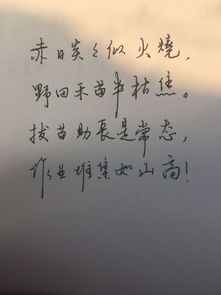 赤日炎々似火燒，
野田禾苗半枯焦。
拔苗助長是常态，
作业堆集如山高！